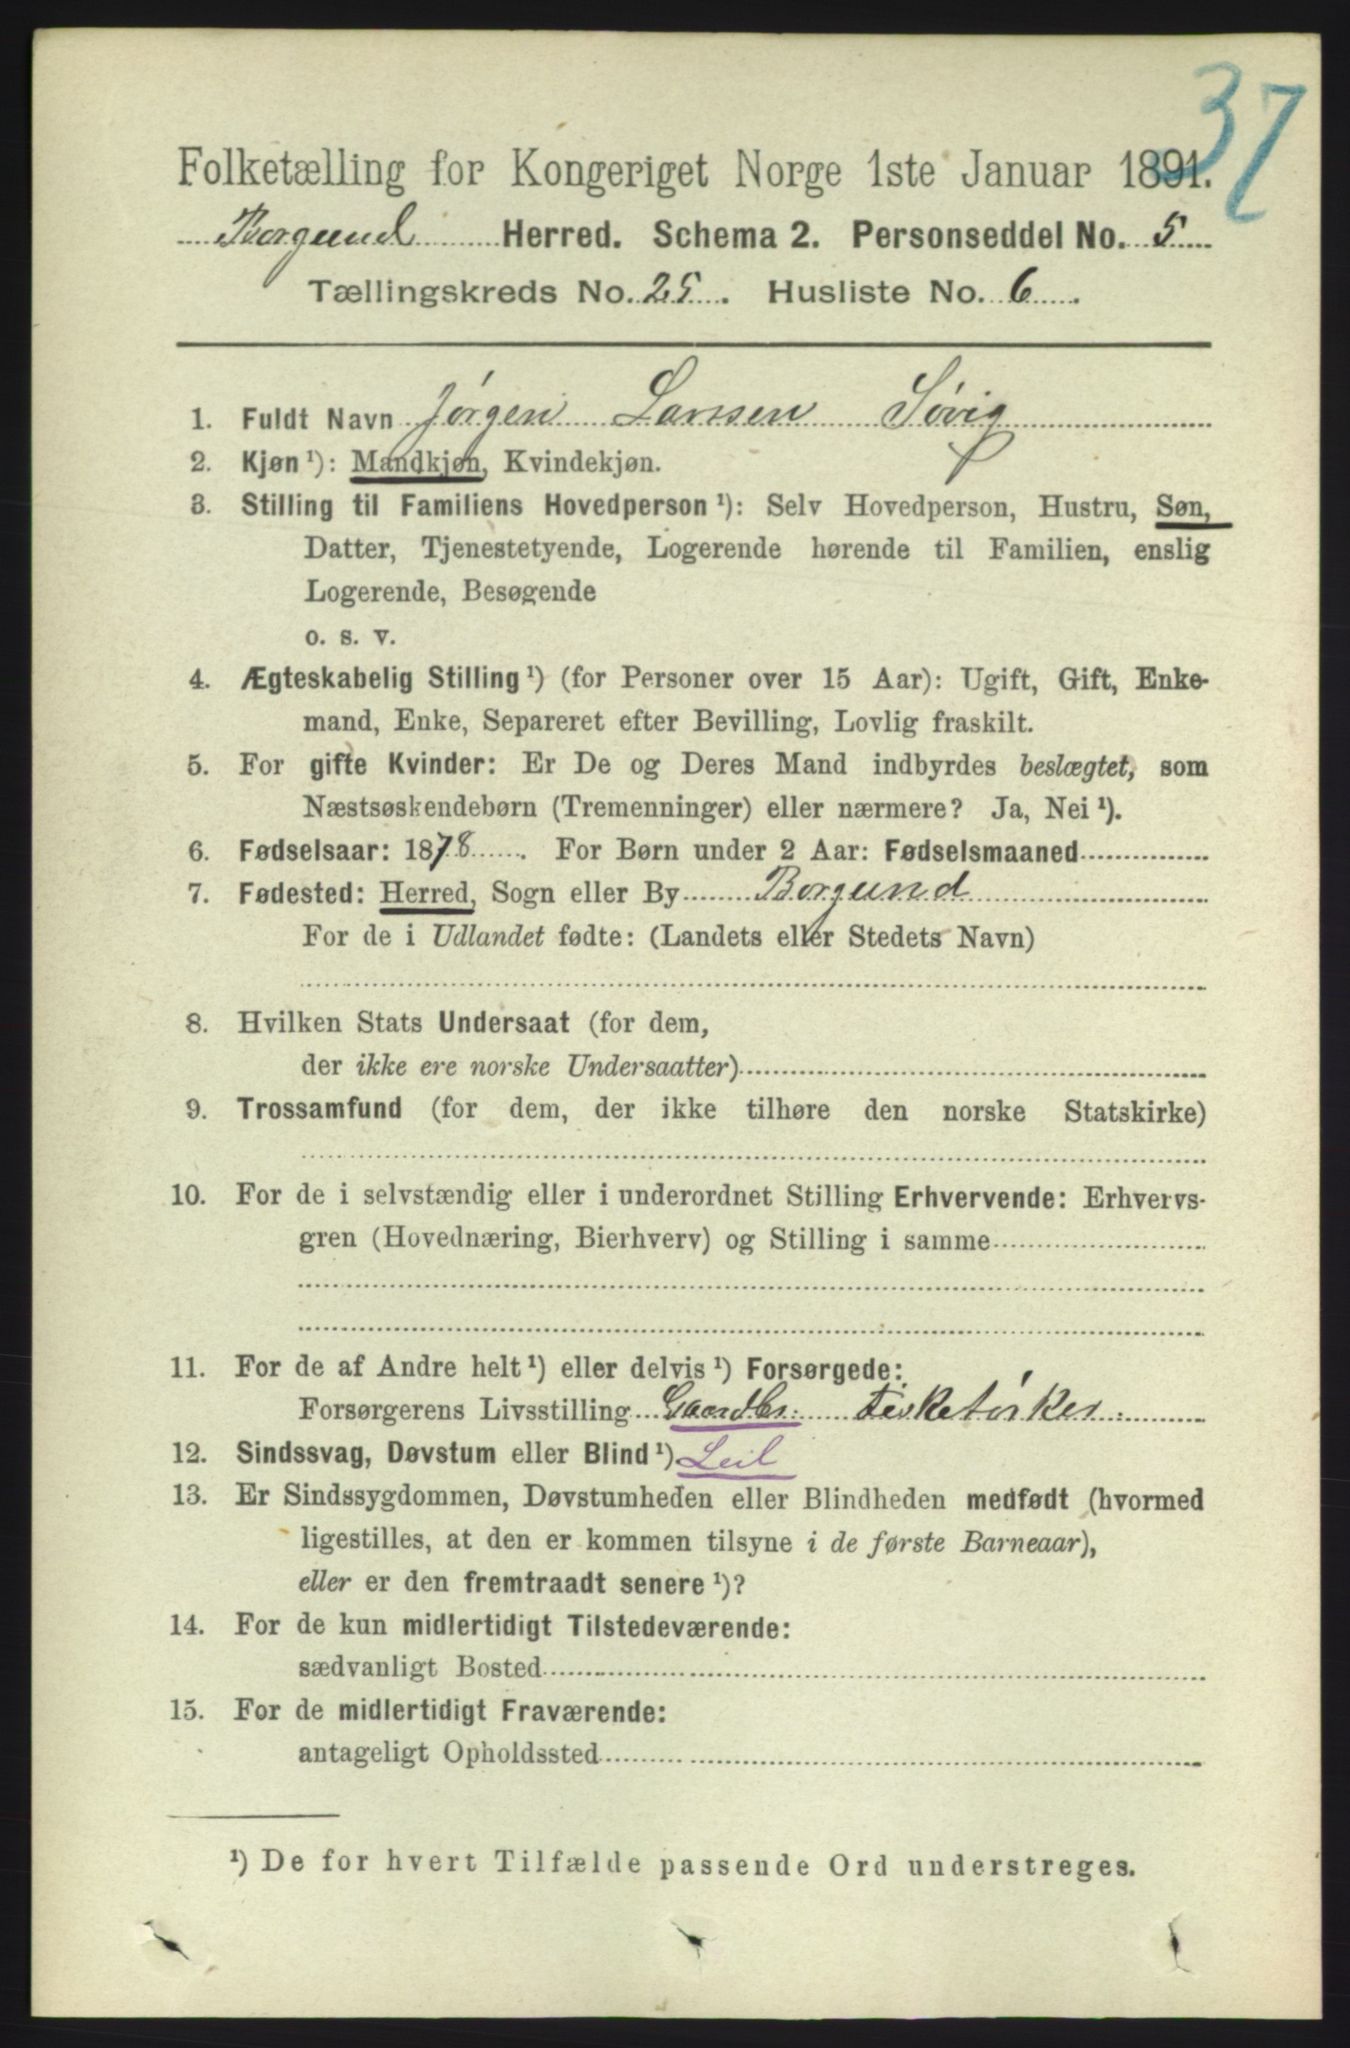 37
Folketælling for Kongeriget Norge 1ste Januar 1891.
Borgund Herred. Schema 2. Personseddel No. 5
Tællingskreds No. 25. Husliste No. 6.
1. Fuldt Navn Jørgen Larsen Søvig
2. Kjøn ¹): Mandkjøn, Kvindekjøn.
3. Stilling til Familiens Hovedperson ¹): Selv Hovedperson, Hustru, Søn,
Datter, Tjenestetyende, Logerende hørende til Familien, enslig
Logerende, Besøgende
o. s. v.
4. Ægteskabelig Stilling ¹) (for Personer over 15 Aar): Ugift, Gift, Enke-
mand, Enke, Separeret efter Bevilling, Lovlig fraskilt.
5. For gifte Kvinder: Er De og Deres Mand indbyrdes beslægtet, som
Næstsøskendebørn (Tremenninger) eller nærmere? Ja, Nei ¹).
6. Fødselsaar: 1878. For Børn under 2 Aar: Fødselsmaaned
7. Fødested: Herred, Sogn eller By Borgund
For de i Udlandet fødte: (Landets eller Stedets Navn)
8. Hvilken Stats Undersaat (for dem,
der ikke ere norske Undersaatter)
9. Trossamfund (for dem, der ikke tilhøre den norske Statskirke)
10. For de i selvstændig eller i underordnet Stilling Erhvervende: Erhvervs-
gren (Hovednæring, Bierhverv) og Stilling i samme
11. For de af Andre helt ¹) eller delvis ¹) Forsørgede:
Forsørgerens Livsstilling Gaardbr: Fisketørker
12. Sindssvag, Døvstum eller Blind ¹) Leil
13. Er Sindssygdommen, Døvstumheden eller Blindheden medfødt (hvormed
ligestilles, at den er kommen tilsyne i de første Barneaar),
eller er den fremtraadt senere ¹)?
14. For de kun midlertidigt Tilstedeværende:
sædvanligt Bosted
15. For de midlertidigt Fraværende:
antageligt Opholdssted
¹) De for hvert Tilfælde passende Ord understreges.